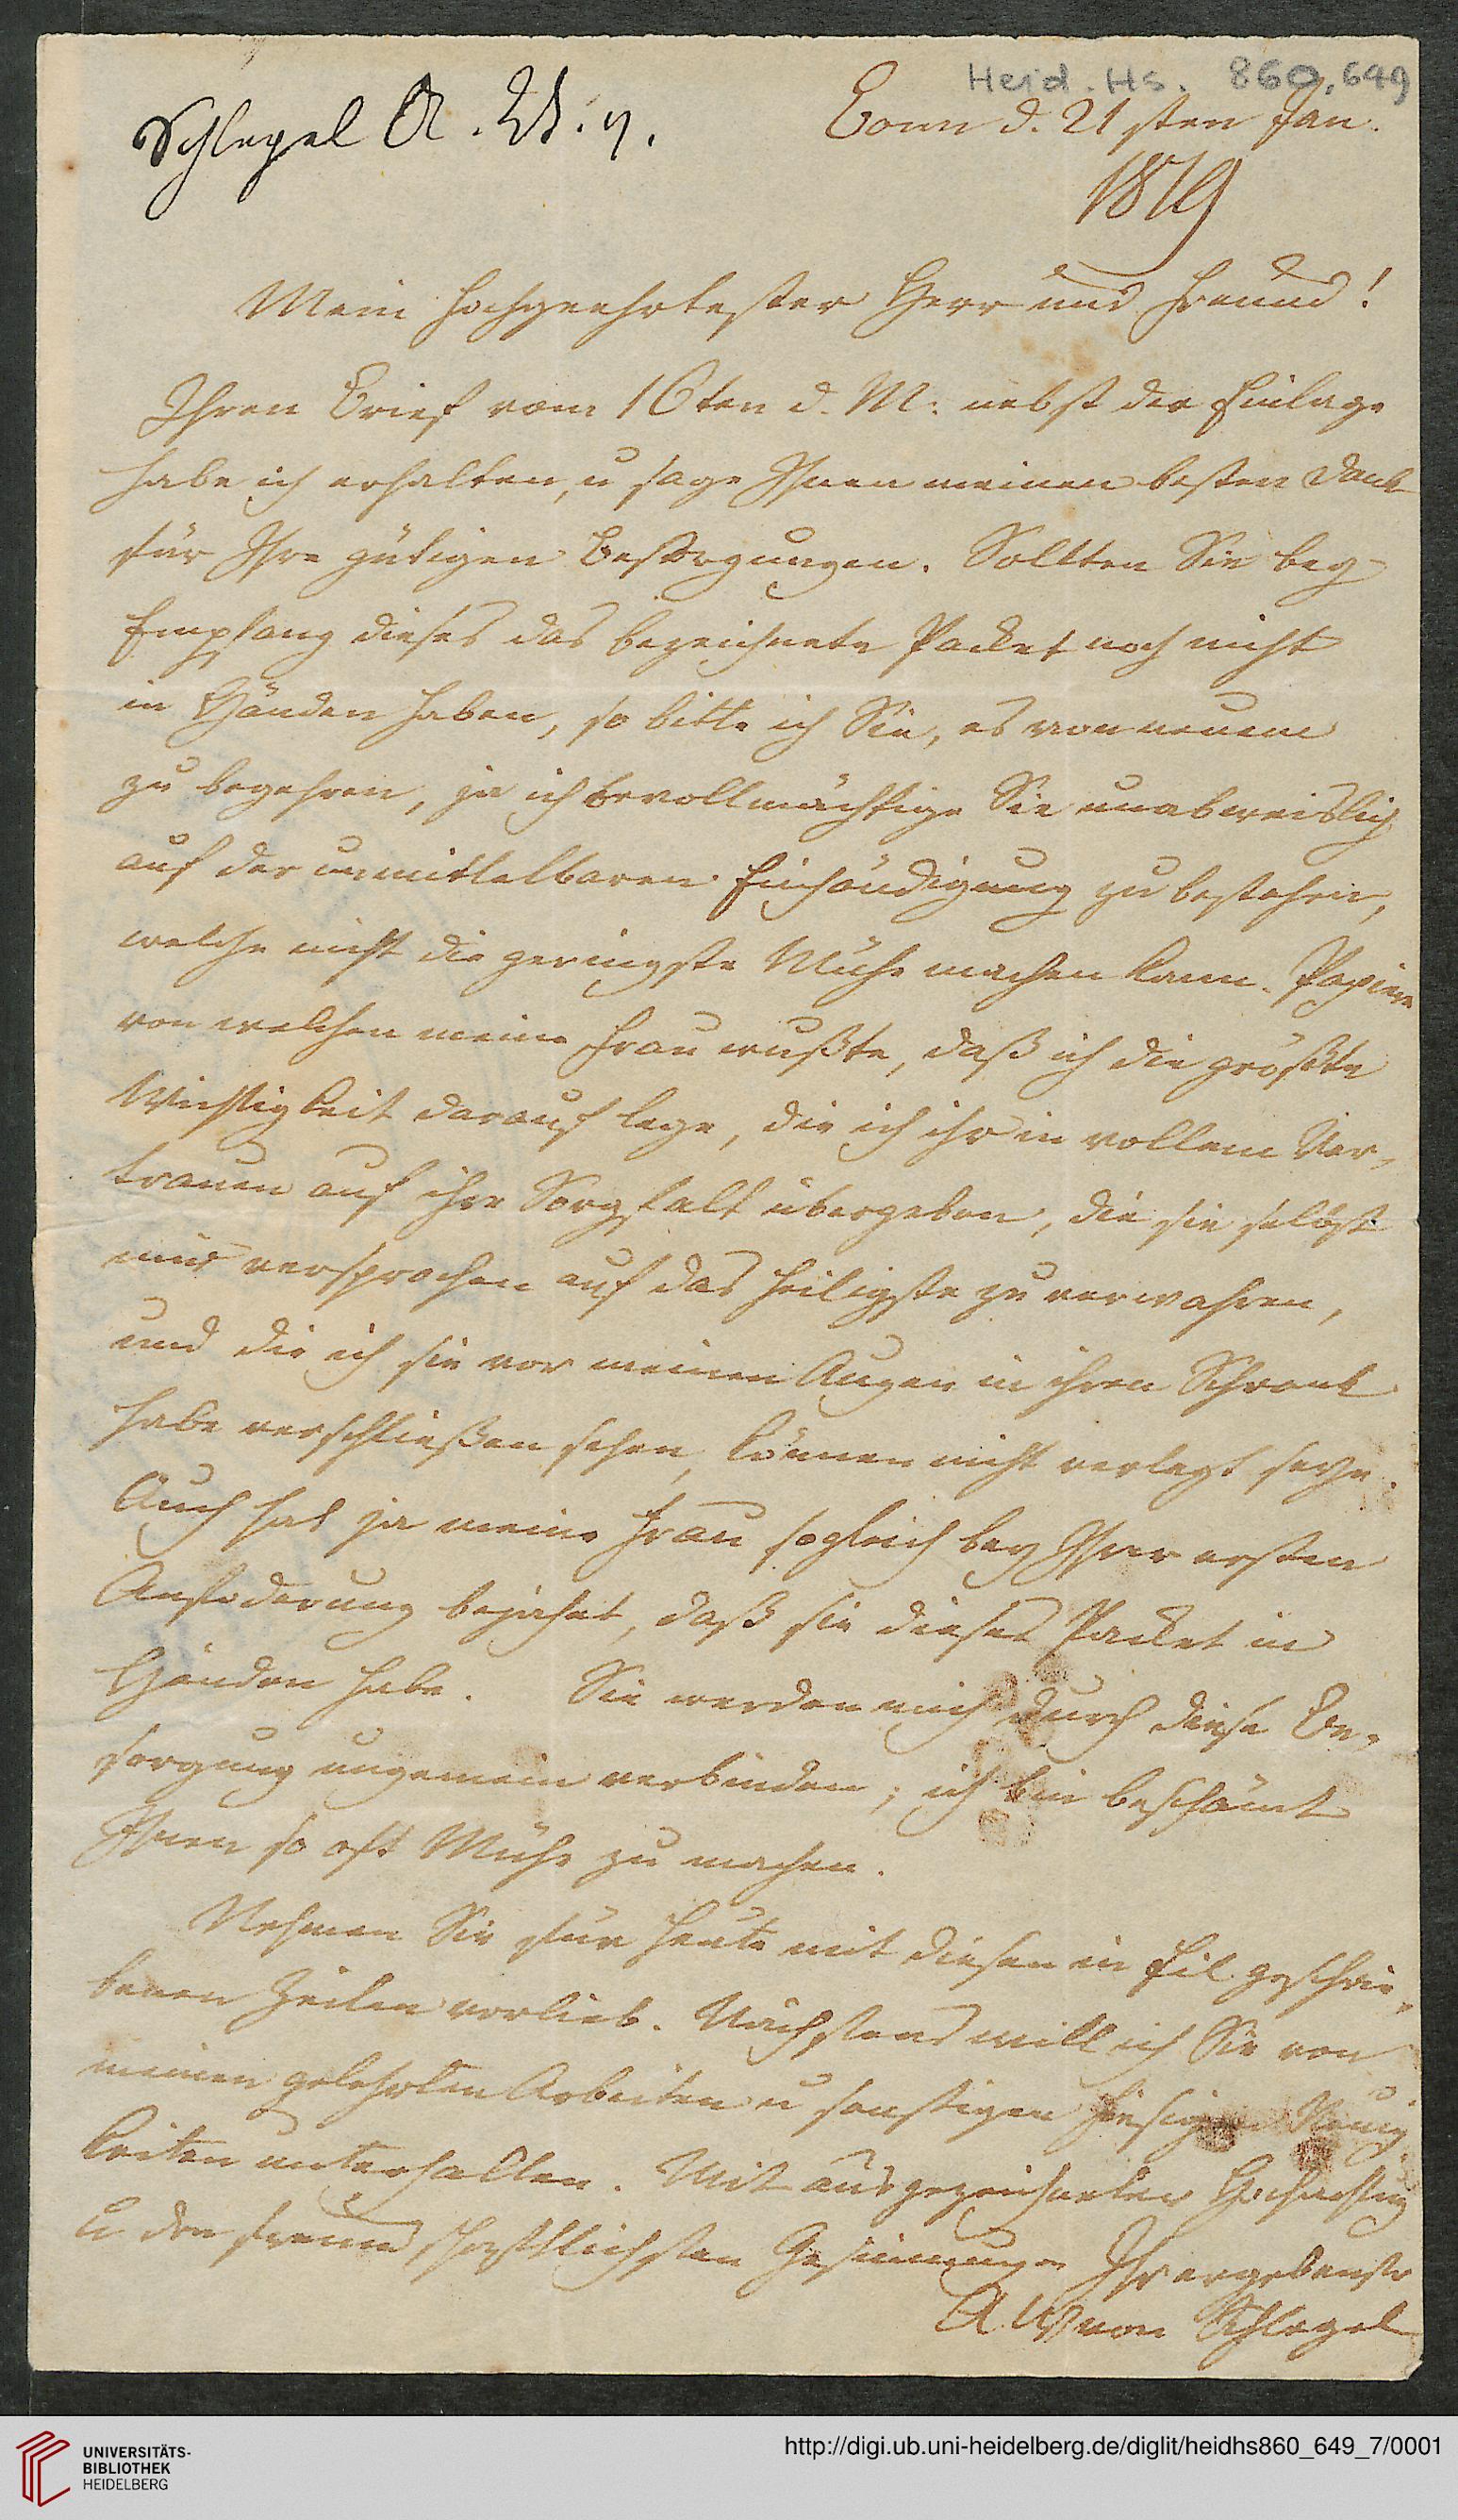 Heid. Hs. 860, 649
Schlegel A. W. v.
Bonn d. 21sten Jan.
1819
Mein hochgeehrtester Herr und Freund!
Ihren Brief vom 16ten d. M. nebst der Einlage
habe ich erhalten, u sage Ihnen meinen besten Dank
für Ihre gütigen Besorgungen. Sollten Sie bey
Empfang dieses das bezeichnete Packet noch nicht
in Händen haben, so bitte ich Sie, es von neuem
zu begehren, ja ich bevollmächtige Sie unabweislich
auf der unmittelbaren Einhändigung zu bestehen,
welche nicht die geringste Mühe machen kann. Papiere
von welchen meine Frau wußte, daß ich die größte
Wichtigkeit darauf lege, die ich ihr in vollem Ver-
trauen auf ihre Sorgfalt übergeben, die sie selbst
mir versprochen auf das heiligste zu verwahren,
und die ich sie vor meinen Augen in ihren Schrank
habe verschließen sehen, können nicht verlegt seyn.
Auch hat ja meine Frau sogleich bey Ihrer ersten
Anfoderung bejahet, daß sie dieses Packet in
Händen habe. Sie werden mich durch diese Be-
sorgung ungemein verbinden; ich bin beschämt
Ihnen so oft Mühe zu machen.
Nehmen Sie für heute mit diesen in Eil geschrie-
benen Zeilen vorlieb. Nächstens will ich Sie von
meinen gelehrten Arbeiten u sonstigen hiesigen Neuig
keiten unterhalten. Mit ausgezeichneter Hochachtung
u den freundschaftlichsten Gesinnungen Ihr ergebenster
A W von Schlegel
UNIVERSITÄTS-
BIBLIOTHEK
HEIDELBERG
http://digi.ub.uni-heidelberg.de/diglit/heidhs860_649_7/0001